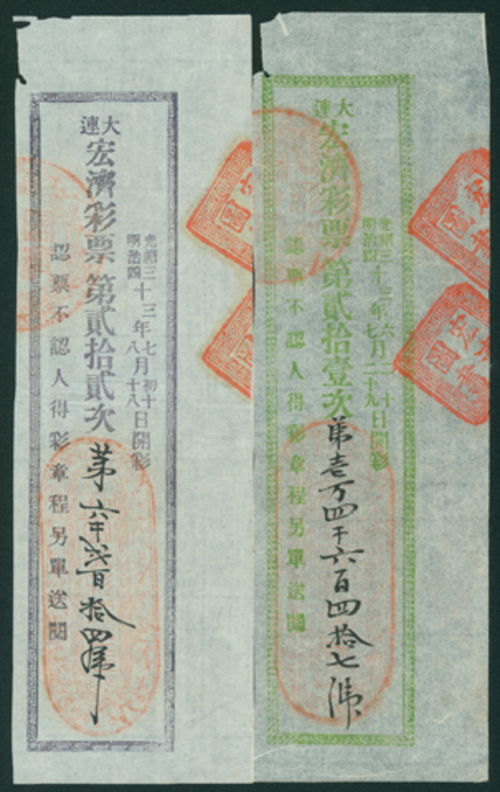 大連
光緒三十三年六月二十日開彩
明治四十年七月二十九日開彩
宏濟彩票第貳拾壹次
第壹万四千六百四拾七號
認票不認人得彩章程另單送閱
大連
光緒三十三年七月初十日開彩
明治四十年八月十八日開彩
宏濟彩票第貳拾貳次
第六千貳百拾四號
認票不認人得彩章程另單送閱